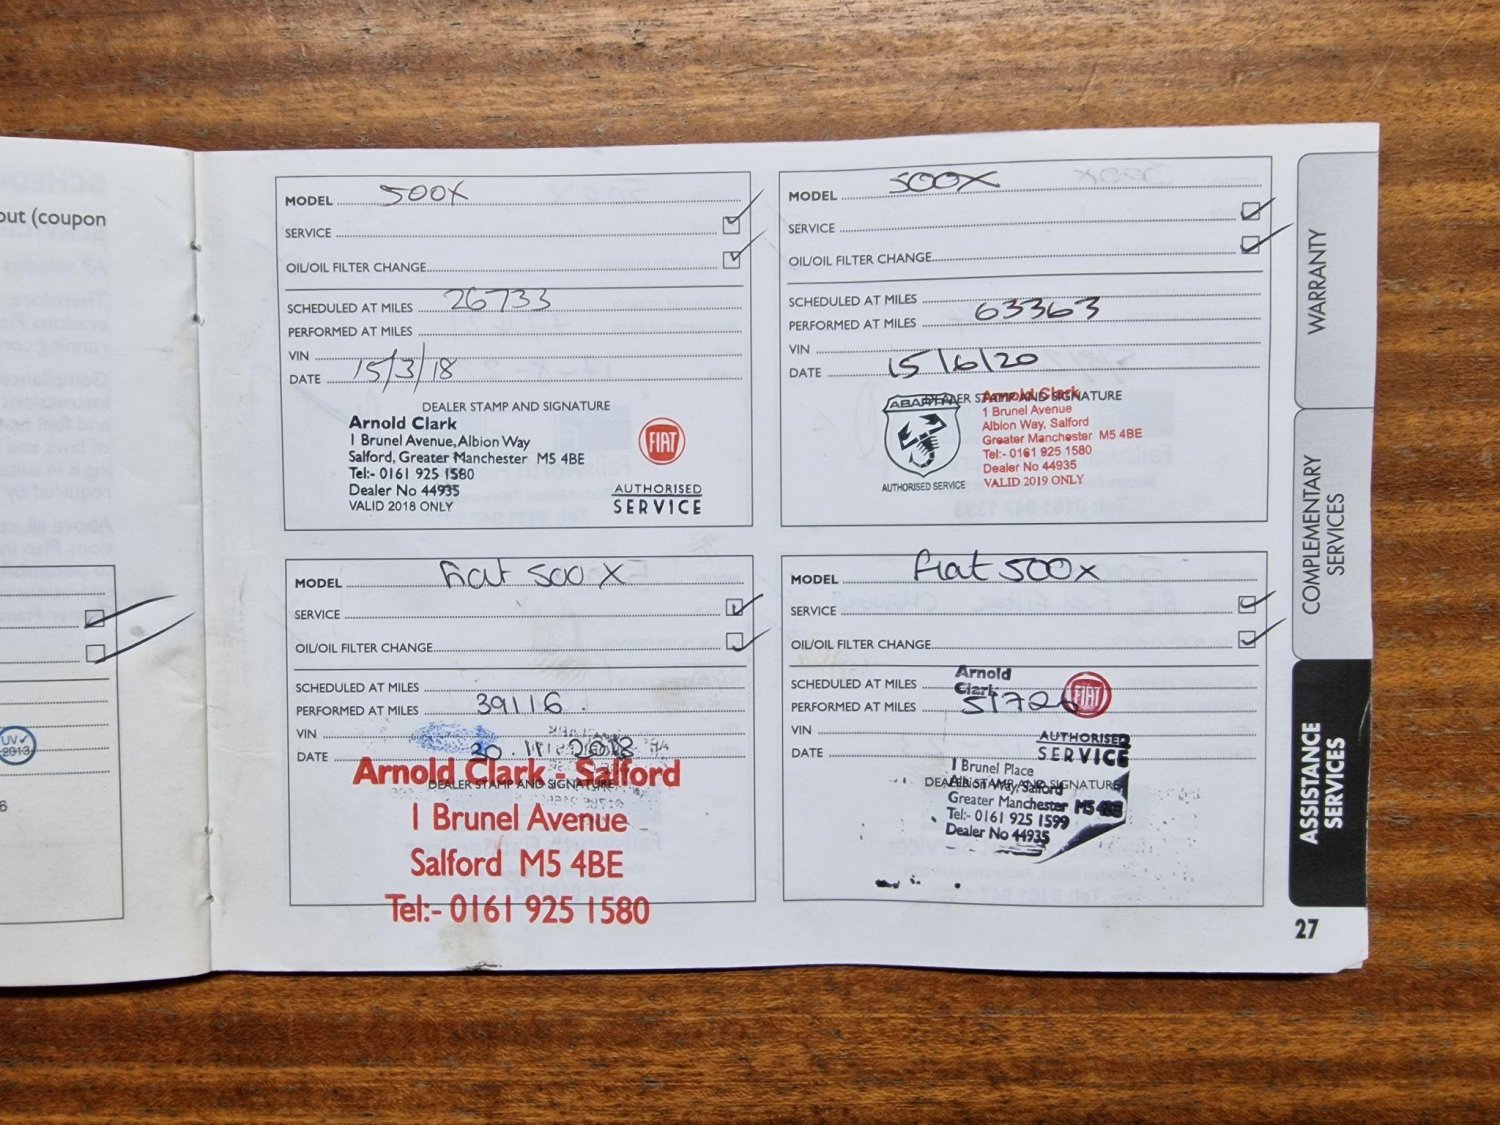 out (coupon
UV✓
2013
6
MODEL 500X
SERVICE
OIL/OIL FILTER CHANGE
SCHEDULED AT MILES 26733
PERFORMED AT MILES
VIN
DATE 15/3/18
DEALER STAMP AND SIGNATURE
Arnold Clark
1 Brunel Avenue, Albion Way
Salford, Greater Manchester M5 4BE
Tel:- 0161 925 1580
Dealer No 44935
VALID 2018 ONLY
FIAT
AUTHORISED
SERVICE
MODEL 500X
SERVICE
OIL/OIL FILTER CHANGE
SCHEDULED AT MILES
PERFORMED AT MILES 63363
VIN
DATE 15/6/20
DEALER STAMP AND SIGNATURE
ABARTH
AUTHORISED SERVICE
Arnold Clark
1 Brunel Avenue
Albion Way, Salford
Greater Manchester M5 4BE
Tel:- 0161 925 1580
Dealer No 44935
VALID 2019 ONLY
MODEL Fiat 500X
SERVICE
OIL/OIL FILTER CHANGE
SCHEDULED AT MILES
PERFORMED AT MILES 39116.
VIN
DATE 20.11.2018
DEALER STAMP AND SIGNATURE
Arnold Clark - Salford
1 Brunel Avenue
Salford M5 4BE
Tel:- 0161 925 1580
MODEL Fiat 500X
SERVICE
OIL/OIL FILTER CHANGE
SCHEDULED AT MILES
PERFORMED AT MILES 51726
VIN
DATE
DEALER STAMP AND SIGNATURE
Arnold
Clark
FIAT
AUTHORISED
SERVICE
1 Brunel Place
Albion Way, Salford
Greater Manchester M5 4BE
Tel:- 0161 925 1599
Dealer No 44935
WARRANTY
COMPLEMENTARY
SERVICES
ASSISTANCE
SERVICES
27